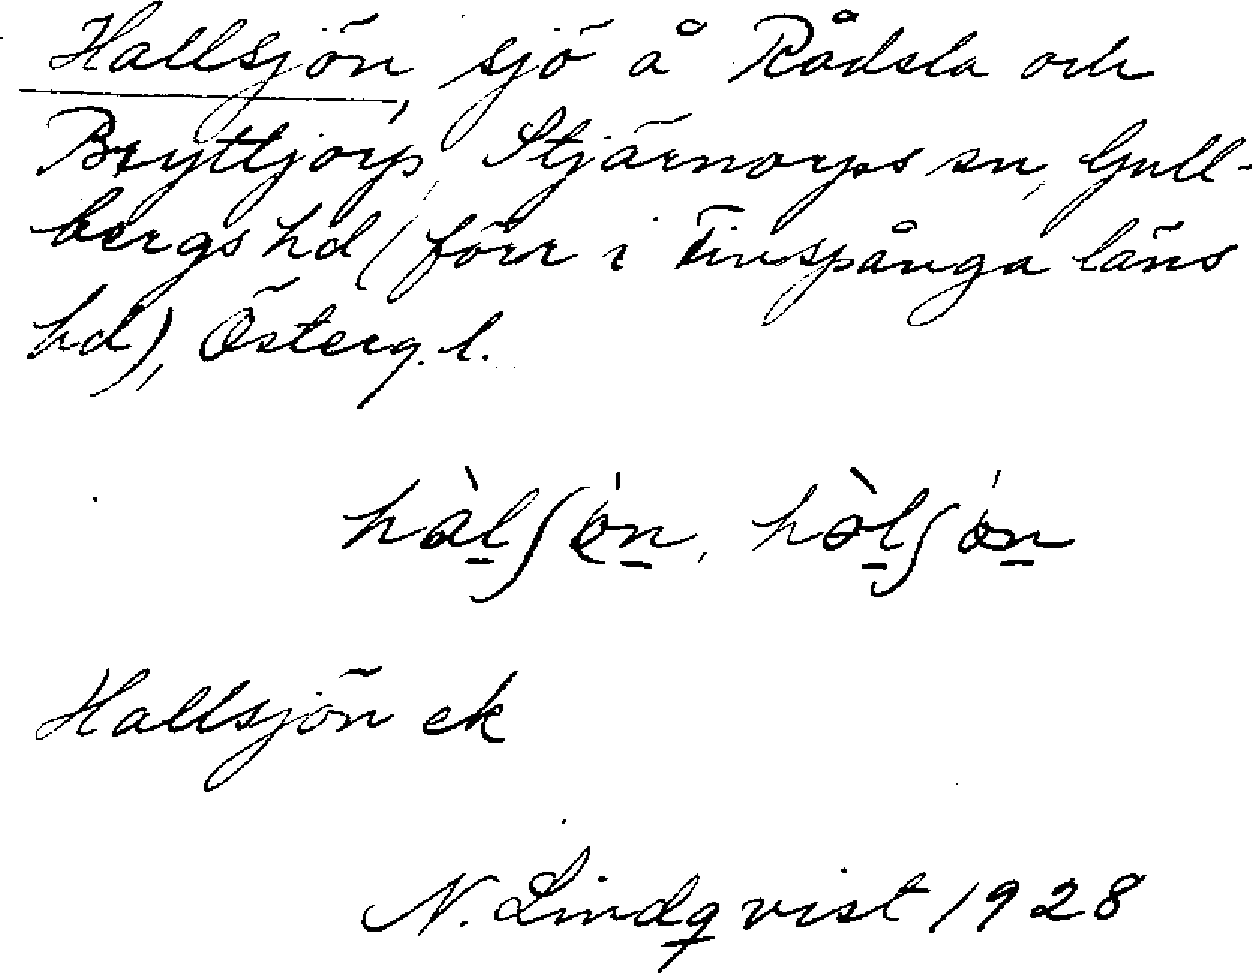 Hallsjön, sjö å Rådsla och
Bryttjorp, Stjärnorps sn, Gull-
bergs hd (förr i Finspånga läns
hd), Österg. l.
Hallsjön ek
N. Lindqvist 1928